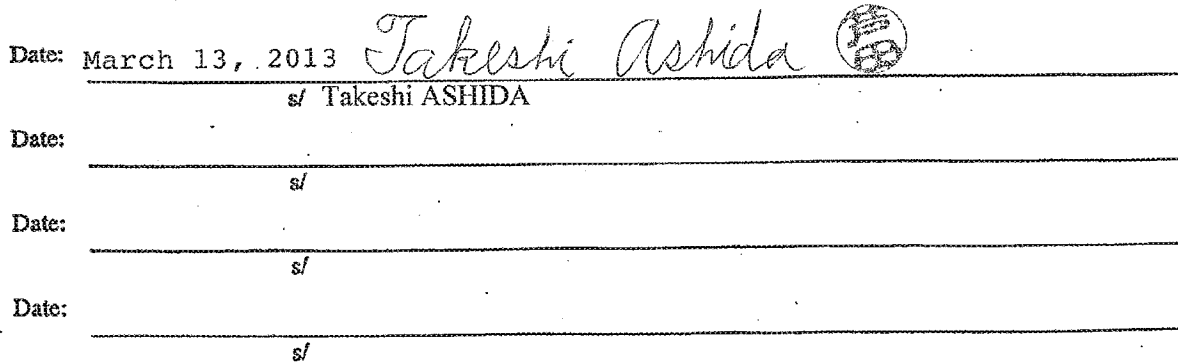 Date: March 13, 2013 Takeshi Ashida 芦田
s/ Takeshi ASHIDA
Date:
s/
Date:
s/
Date:
s/